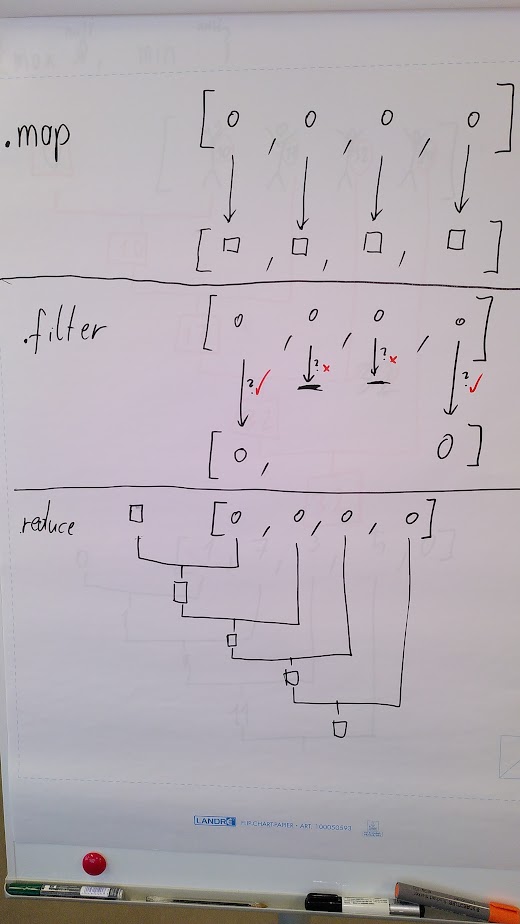 .map
[ o , o , o , o ]
[ □ , □ , □ , □ ]
.filter
[ o , o , o , o ]
? ✓ ? x ? x ? ✓
[ o , o ]
.reduce □ [ o , o , o , o ]
□
□
□
□
LANDRÉ FLIP-CHARTPAPIER · ART. 100050593